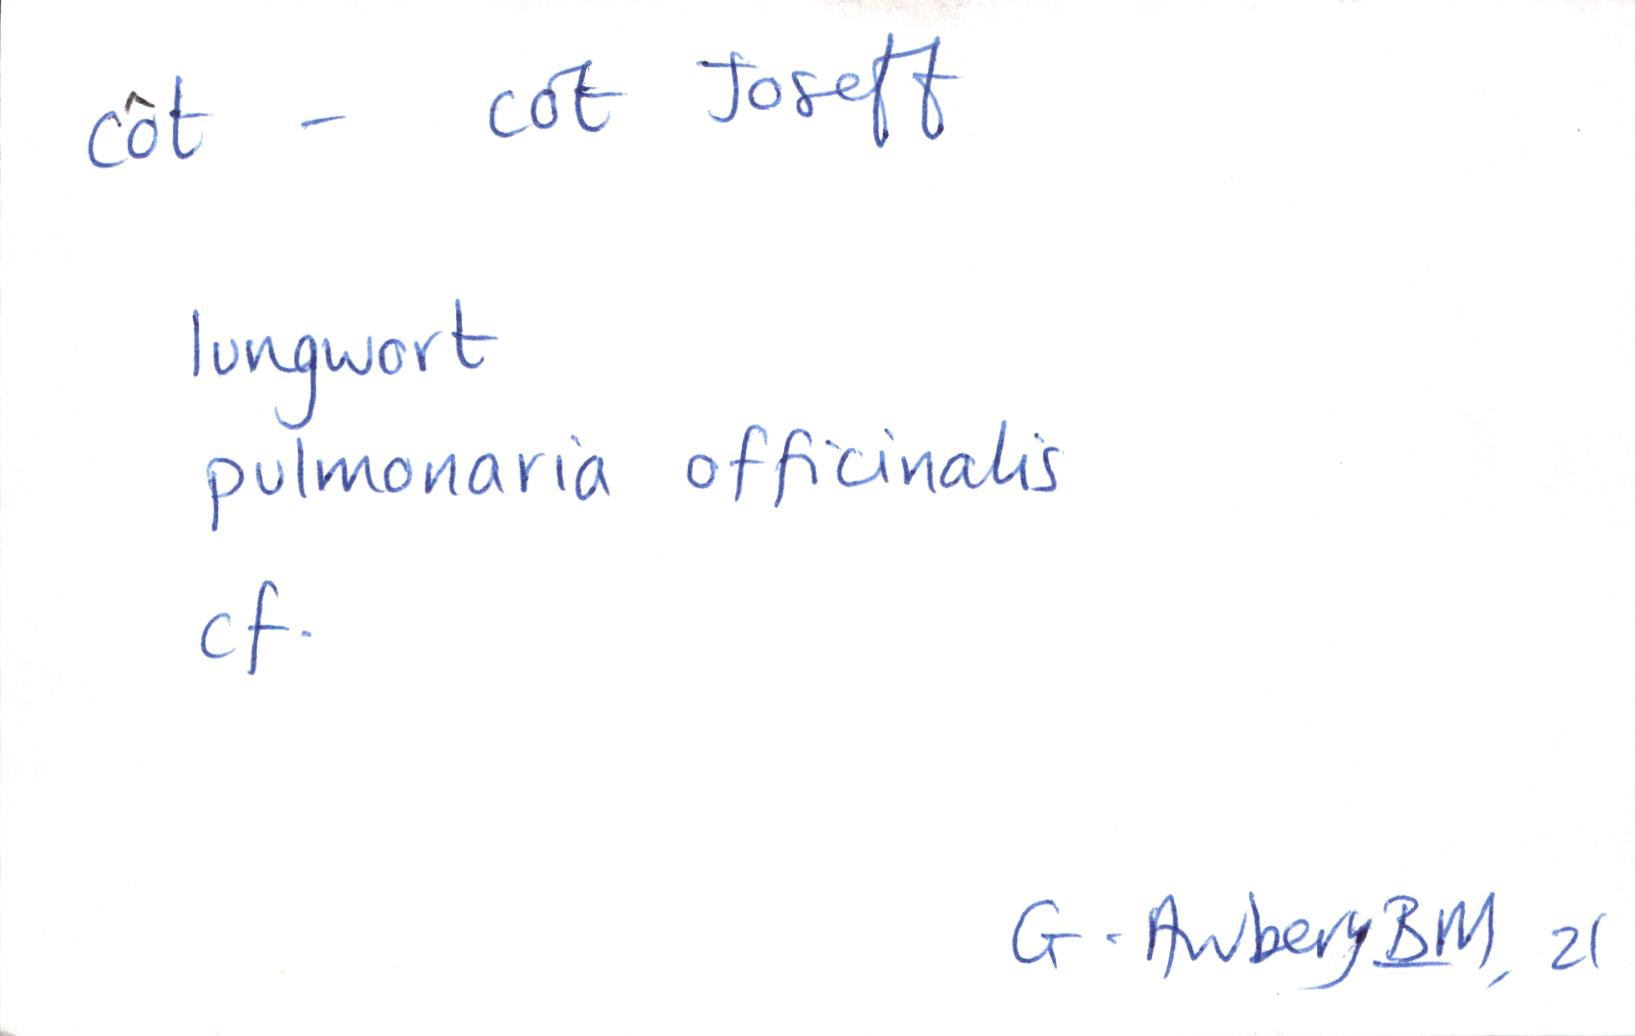 côt - cot Joseff
lungwort
pulmonaria officinalis
cf.
G. Awbery BM, 21